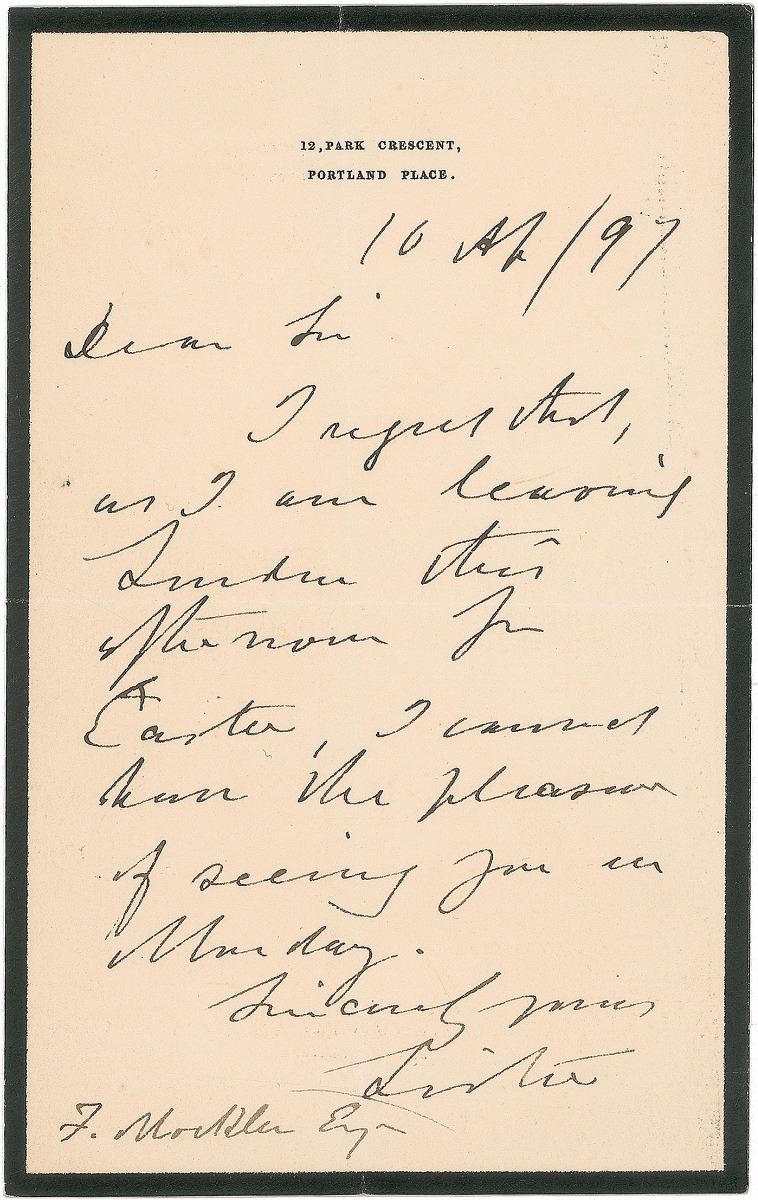 12, PARK CRESCENT,
PORTLAND PLACE.
10 Ap/97
Dear Sir
I regret that,
as I am leaving
London this
afternoon for
Easter, I cannot
have the pleasure
of seeing you on
Monday.
Sincerely yours
Lister
F. Mockler Esq